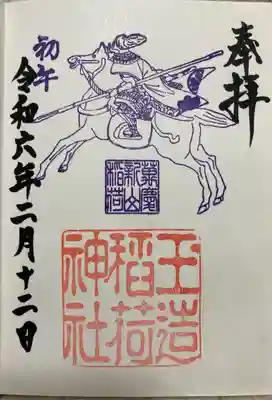 奉拝
初午
令和六年二月十二日
玉造
稲荷
神社